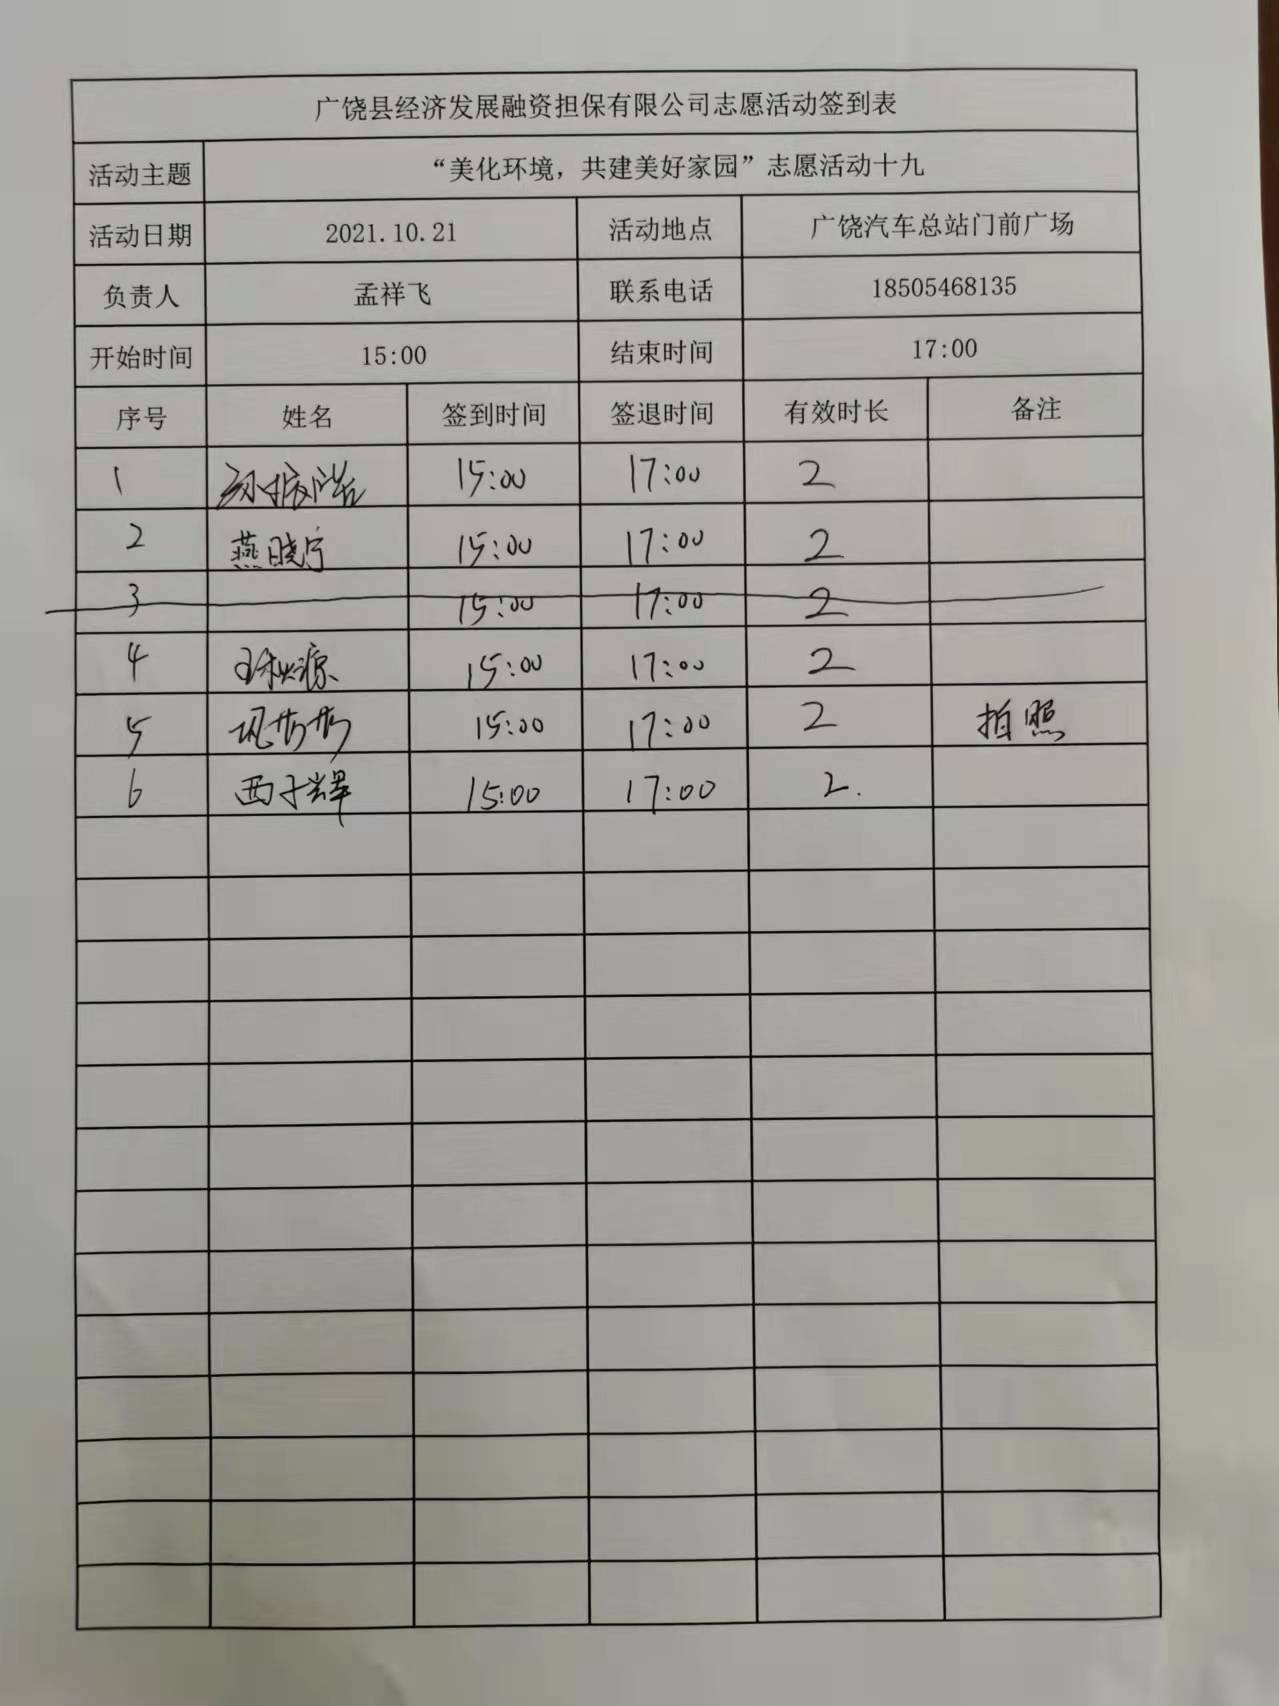 广饶县经济发展融资担保有限公司志愿活动签到表
活动主题 “美化环境，共建美好家园”志愿活动十九
活动日期 2021.10.21 活动地点 广饶汽车总站门前广场
负责人 孟祥飞 联系电话 18505468135
开始时间 15:00 结束时间 17:00
序号 姓名 签到时间 签退时间 有效时长 备注
1 15:00 17:00 2
2 燕晓宁 15:00 17:00 2
3 15:00 17:00 2
4 15:00 17:00 2
5 15:00 17:00 2 拍照
6 西子辉 15:00 17:00 2.